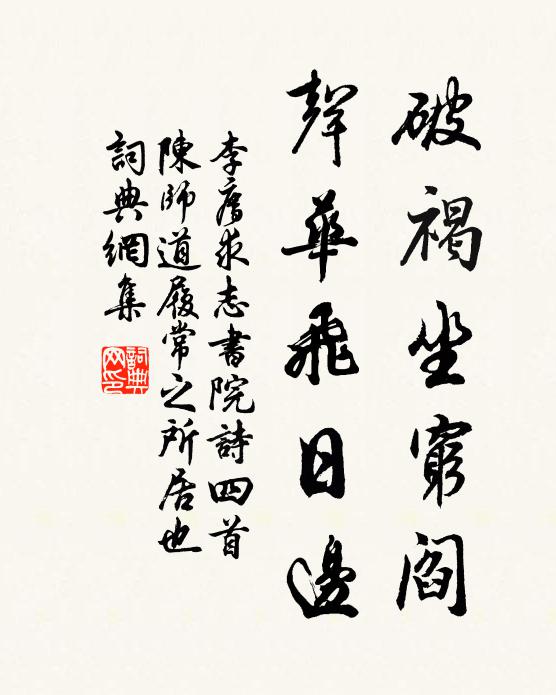 破褐坐窮閻
聲華飛日邊
李廌求志書院詩四首
陳師道履常之所居也
詞典網集
詞典網印